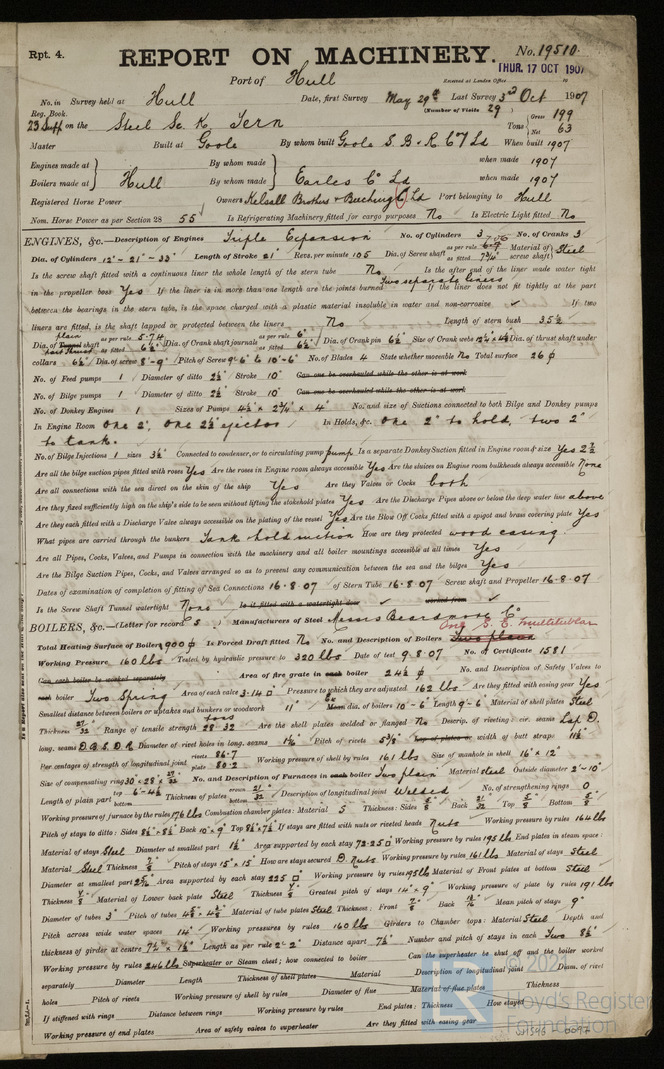 Rpt. 4.
REPORT ON MACHINERY.
No. 19510.
Port of Hull
Received at London Office
THUR. 17 OCT 1907
No. in Survey held at Hull Date, first Survey May 29th Last Survey 3rd Oct 1907
Reg. Book. (Number of Visits 29)
23 Supp on the Steel Sc. K. Tern Tons { Gross 199 Net 63
Master Built at Goole By whom built Goole S. B. & R. Co Ld When built 1907
Engines made at By whom made when made 1907
Boilers made at } Hull By whom made } Earles Co Ld when made 1907
Registered Horse Power Owners Kelsall Brothers & Beeching Ld Port belonging to Hull
Nom. Horse Power as per Section 28 55 Is Refrigerating Machinery fitted for cargo purposes No Is Electric Light fitted No
ENGINES, &c.—Description of Engines Triple Expansion No. of Cylinders 3 No. of Cranks 3
Dia. of Cylinders 12" - 21" - 33" Length of Stroke 21" Revs. per minute 105 Dia. of Screw shaft as per rule 7.06 as fitted 7 3/4" Material of screw shaft } Steel
Is the screw shaft fitted with a continuous liner the whole length of the stern tube No Is the after end of the liner made water tight
in the propeller boss Yes If the liner is in more than one length are the joints burned Two separate liners If the liner does not fit tightly at the part
between the bearings in the stern tube, is the space charged with a plastic material insoluble in water and non-corrosive ✓ If two
liners are fitted, is the shaft lapped or protected between the liners No Length of stern bush 35 1/2
Dia. of Tunnel shaft plain as per rule 5.74 as fitted 6 1/2" Dia. of Crank shaft journals as per rule 6" as fitted 6 1/2" Dia. of Crank pin 6 1/2" Size of Crank webs Dia. of thrust shaft under
collars 6 1/2" Dia. of screw 8-9" Pitch of Screw 9-6" to 10-6" No. of Blades 4 State whether moveable No Total surface 26
No. of Feed pumps 1 Diameter of ditto 2 1/2" Stroke 10" Can one be overhauled while the other is at work
No. of Bilge pumps 1 Diameter of ditto 2 1/2" Stroke 10" Can one be overhauled while the other is at work
No. of Donkey Engines 1 Sizes of Pumps 4 1/2" x 2 3/4" x 4" No. and size of Suctions connected to both Bilge and Donkey pumps
In Engine Room One 2", One 2 1/2" ejector In Holds, &c. One 2" to hold, two 2"
to tank.
No. of Bilge Injections 1 sizes 3 1/2" Connected to condenser, or to circulating pump pump Is a separate Donkey Suction fitted in Engine room & size Yes 2 1/2
Are all the bilge suction pipes fitted with roses Yes Are the roses in Engine room always accessible Yes Are the sluices on Engine room bulkheads always accessible None
Are all connections with the sea direct on the skin of the ship Yes Are they Valves or Cocks both
Are they fixed sufficiently high on the ship's side to be seen without lifting the stokehold plates Yes Are the Discharge Pipes above or below the deep water line above
Are they each fitted with a Discharge Valve always accessible on the plating of the vessel Yes Are the Blow Off Cocks fitted with a spigot and brass covering plate Yes
What pipes are carried through the bunkers Tank hold suction How are they protected wood casing
Are all Pipes, Cocks, Valves, and Pumps in connection with the machinery and all boiler mountings accessible at all times Yes
Are the Bilge Suction Pipes, Cocks, and Valves arranged so as to prevent any communication between the sea and the bilges Yes
Dates of examination of completion of fitting of Sea Connections 16.8.07 of Stern Tube 16.8.07 Screw shaft and Propeller 16.8.07
Is the Screw Shaft Tunnel watertight None Is it fitted with a watertight door worked from
BOILERS, &c.—(Letter for record S) Manufacturers of Steel Messrs Beardmore Co
One S. E. multitubular
Total Heating Surface of Boilers 900 Is Forced Draft fitted No No. and Description of Boilers
Working Pressure 160 lbs Tested by hydraulic pressure to 320 lbs Date of test 9.8.07 No. of Certificate 1581
Can each boiler be worked separately Area of fire grate in each boiler 24 1/2 No. and Description of Safety Valves to
each boiler Two Spring Area of each valve 3.14 Pressure to which they are adjusted 162 lbs Are they fitted with easing gear Yes
Smallest distance between boilers or uptakes and bunkers or woodwork 11" dia. of boilers 10-6" Length 9-6" Material of shell plates Steel
Thickness 27/32 Range of tensile strength 28.32 tons Are the shell plates welded or flanged No Descrip. of riveting: cir. seams Lap D.
long. seams D.B.S.D.R. Diameter of rivet holes in long. seams Pitch of rivets 5 7/8 Lap of plates or width of butt straps
Per centages of strength of longitudinal joint rivets 86.7 plate 80.2 Working pressure of shell by rules 161 lbs Size of manhole in shell 16" x 12"
Size of compensating ring 30" x 28" x 27/32" No. and Description of Furnaces in each boiler Two plain Material steel Outside diameter 2'-10"
Length of plain part top 6-4 1/2 bottom Thickness of plates crown 21/32 bottom Description of longitudinal joint Welded No. of strengthening rings 0
Working pressure of furnace by the rules 176 lbs Combustion chamber plates: Material S Thickness: Sides 5/8 Back 21/32 Top 5/8 Bottom 5/8
Pitch of stays to ditto: Sides 8 1/2" x 8 1/2" Back 10" x 9" Top 8 1/2" x 7 1/2" If stays are fitted with nuts or riveted heads Nuts Working pressure by rules 164 lbs
Material of stays Steel Diameter at smallest part 1 1/2" Area supported by each stay 72.25 Working pressure by rules 195 lbs End plates in steam space:
Material Steel Thickness 7/8 Pitch of stays 15" x 15" How are stays secured D. Nuts Working pressure by rules 161 lbs Material of stays Steel
Diameter at smallest part Area supported by each stay 225 Working pressure by rules Material of Front plates at bottom Steel
Thickness Material of Lower back plate Steel Thickness Greatest pitch of stays 14" x 9" Working pressure of plate by rules 191 lbs
Diameter of tubes 3" Pitch of tubes Material of tube plates Steel Thickness: Front 7/8 Back Mean pitch of stays 9"
Pitch across wide water spaces 14" Working pressures by rules 160 lbs Girders to Chamber tops: Material Steel Depth and
thickness of girder at centre Length as per rule 2'-2" Distance apart 7 1/2" Number and pitch of stays in each Two 8 1/2"
Working pressure by rules 246 lbs Superheater or Steam chest; how connected to boiler Can the superheater be shut off and the boiler worked
separately Diameter Length Thickness of shell plates Material Description of longitudinal joint Diam. of rivet
holes Pitch of rivets Working pressure of shell by rules Diameter of flue Material of flue plates Thickness
If stiffened with rings Distance between rings Working pressure by rules End plates: Thickness How stayed
Working pressure of end plates Area of safety valves to superheater Are they fitted with easing gear
© 2021
Lloyd's Register
Foundation